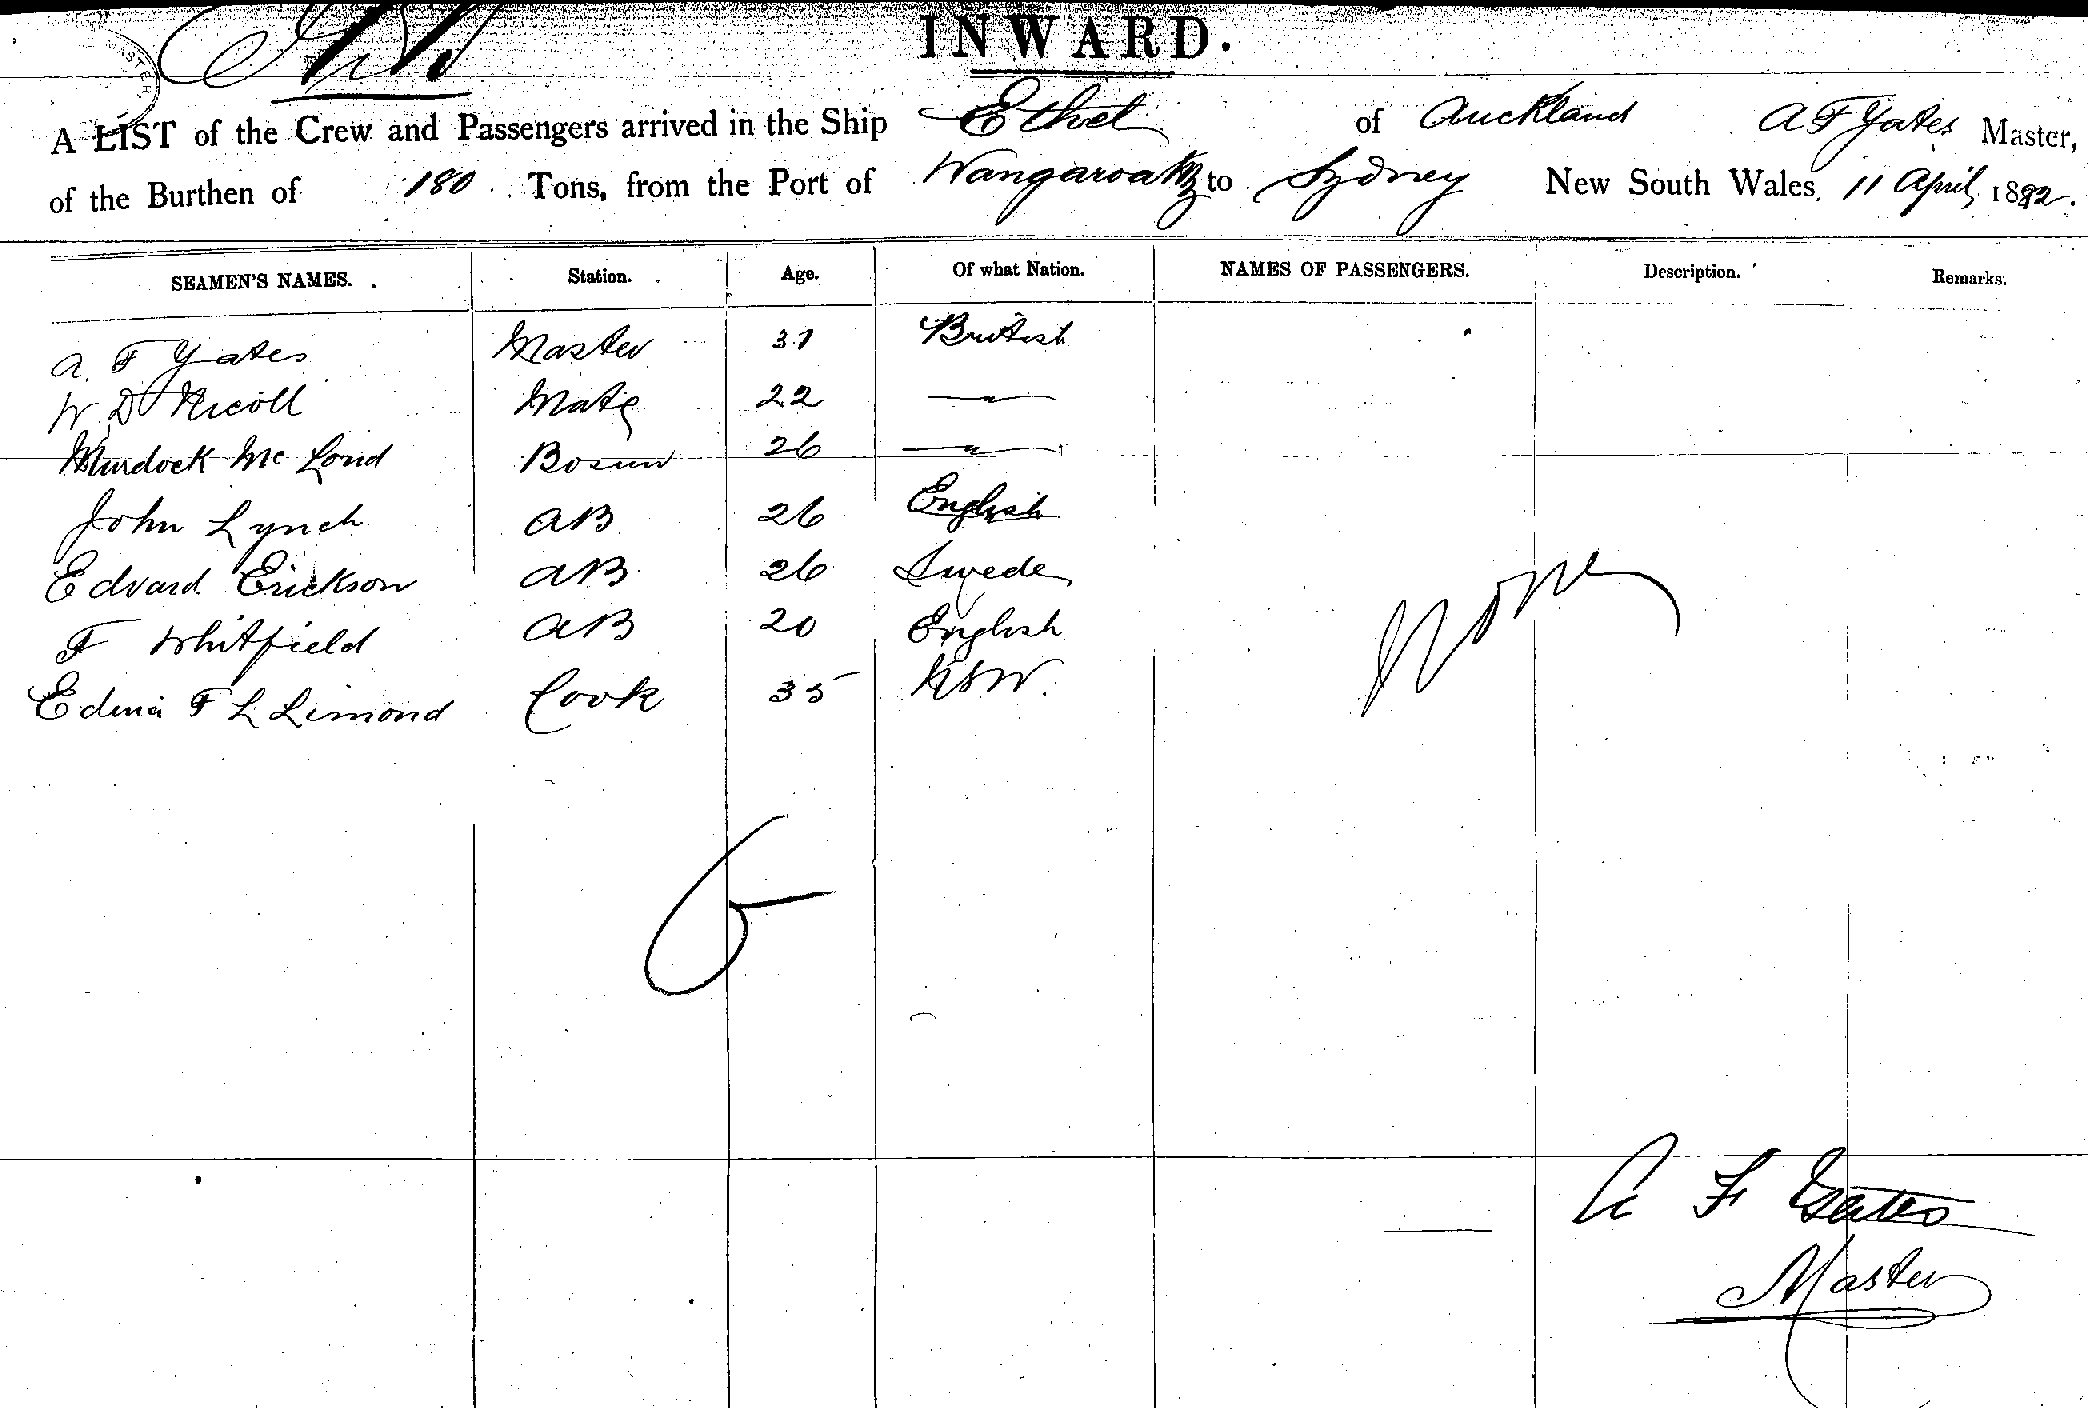 INWARD.
A LIST of the Crew and Passengers arrived in the Ship Ethel of Auckland A F Yates Master,
of the Burthen of 180 Tons, from the Port of Wangaroa NZ to Sydney New South Wales, 11 April 1882.
SEAMEN'S NAMES. Station. Age. Of what Nation. NAMES OF PASSENGERS. Description. Remarks.
A. F Yates Master 31 British
W. D Nicoll Mate 22 — " —
Murdock Mc Loud Bosun 26 — " —
John Lynch AB 26 English
Edvard Erickson AB 26 Swede
F Whitfield AB 20 English
F L Limond Cook 35 NSW.
None
A F Yates
Master